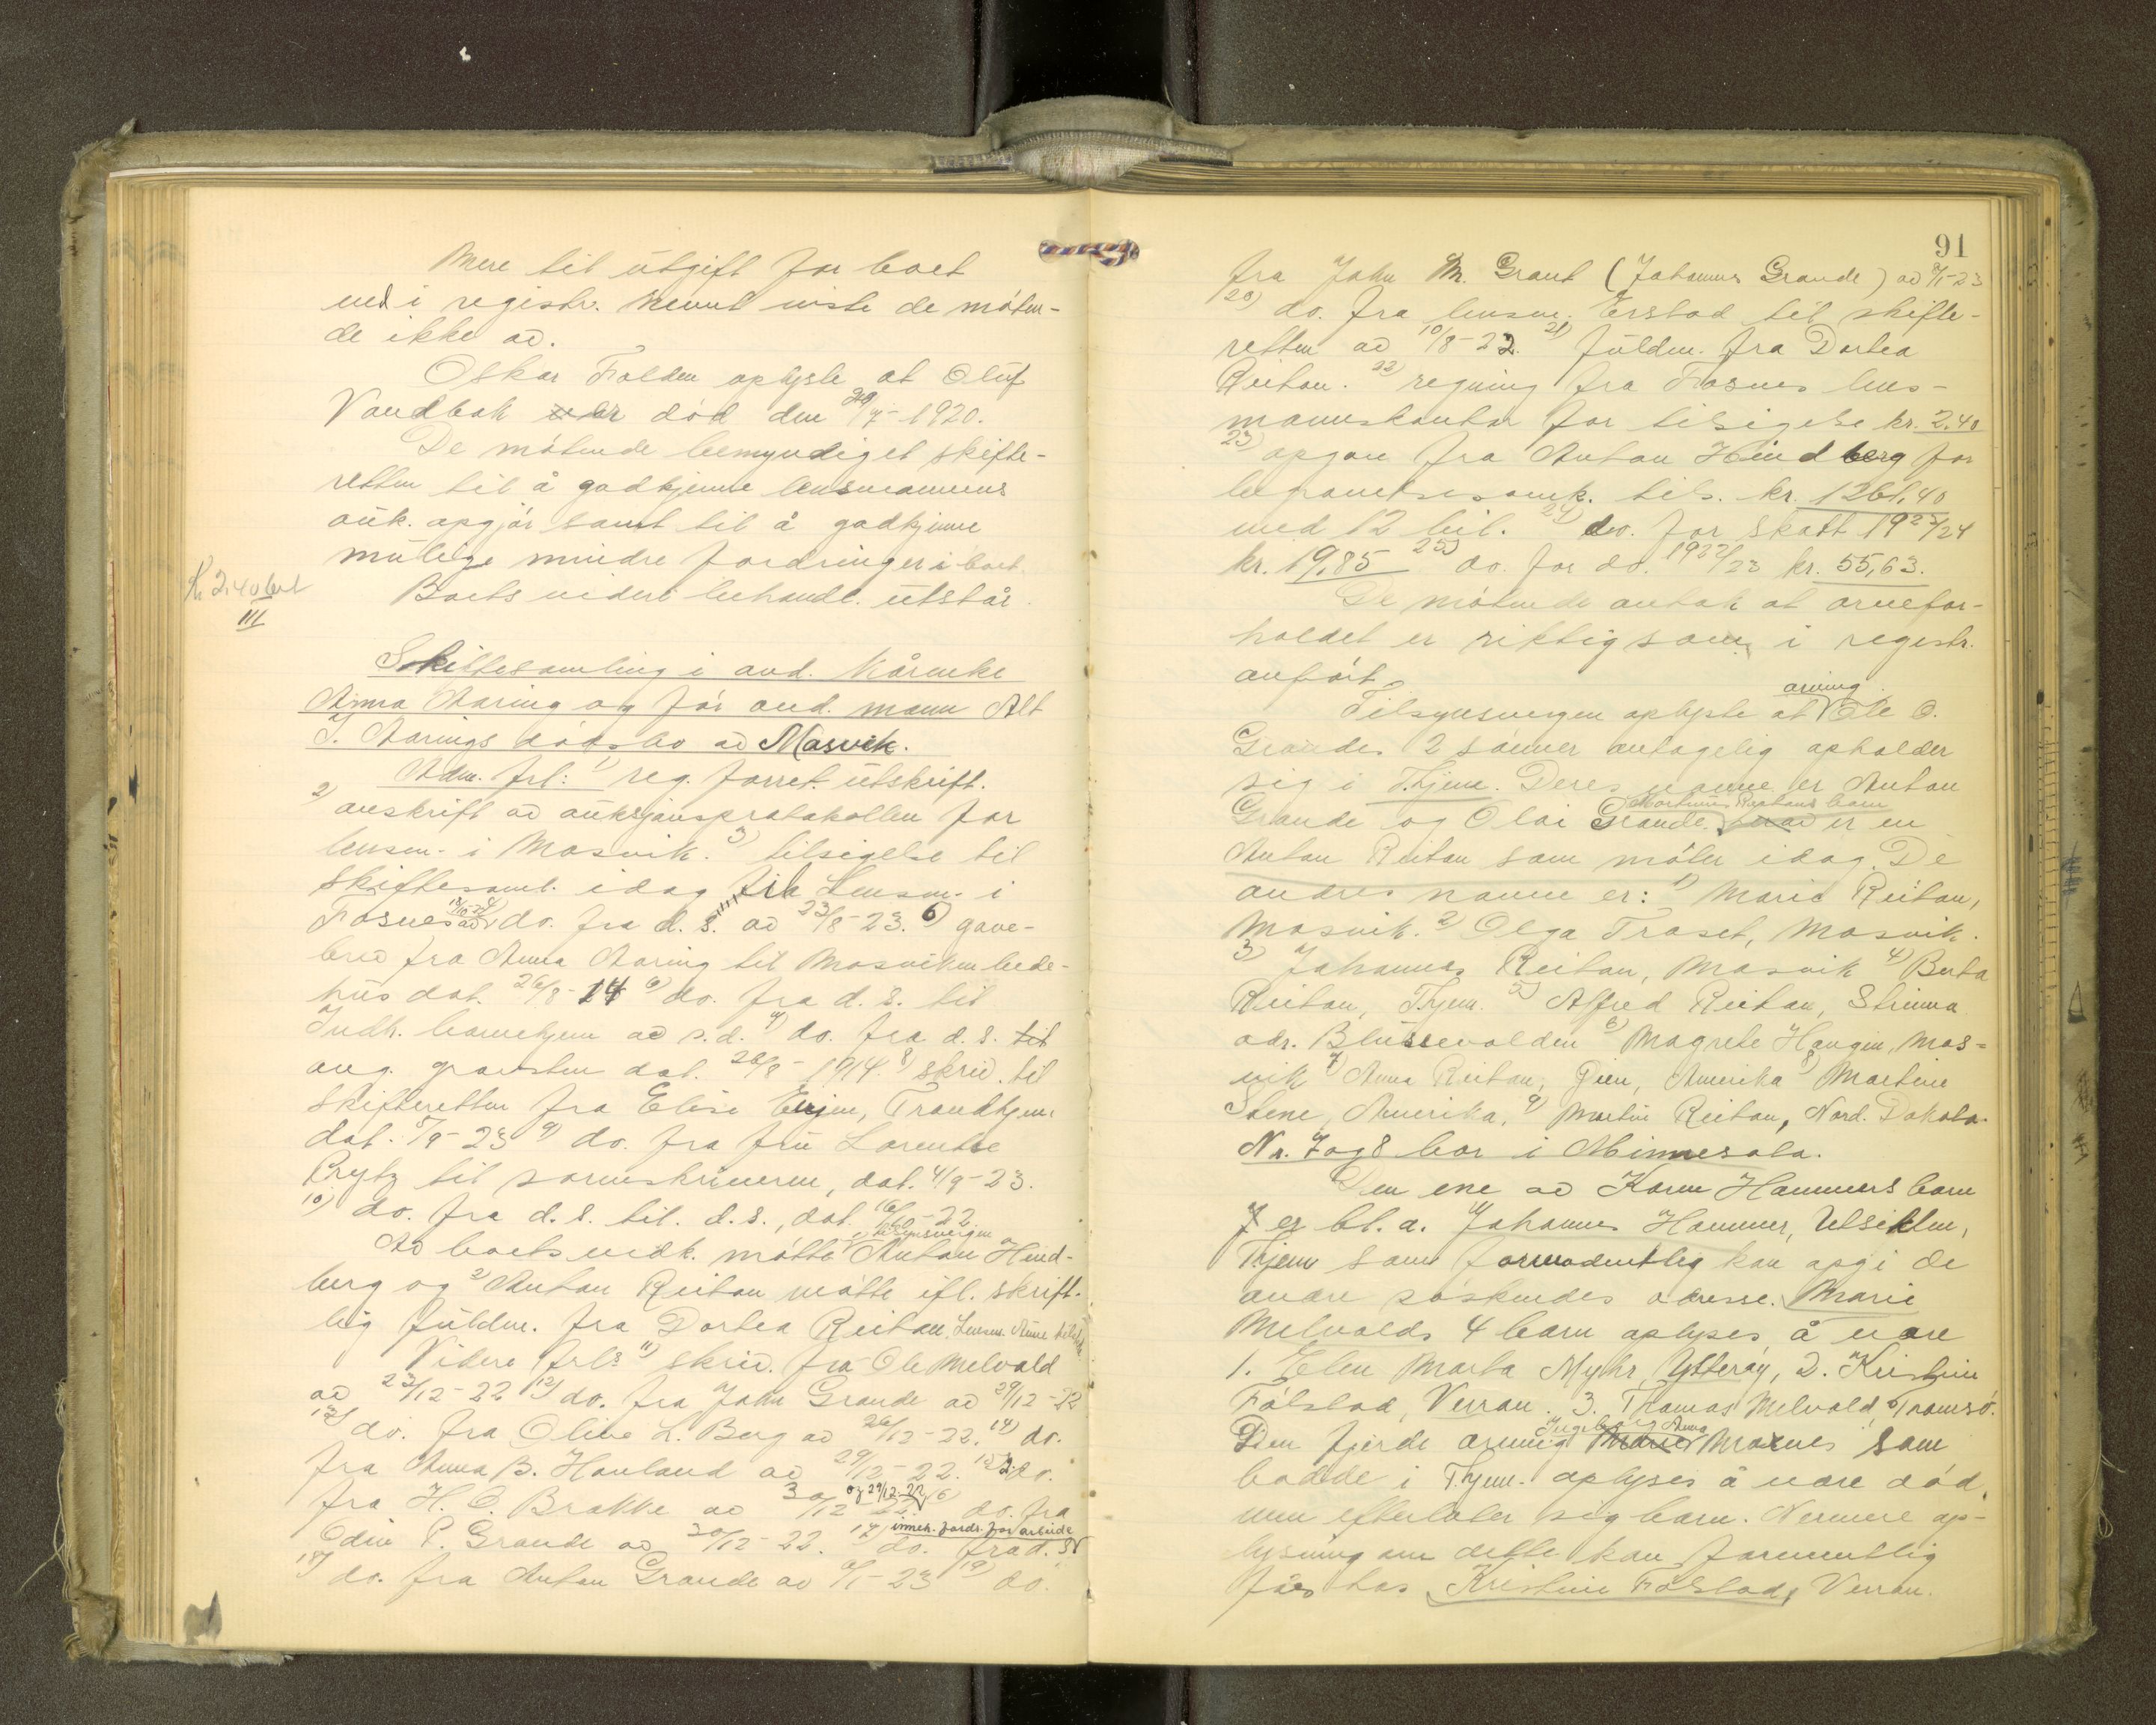 Mere til utgift for boet
end i registr. nevnt viste de møten-
de ikke av.
Oskar Folden oplyste at Oluf
Vandbak er død den 20/4-1920.
De møtende bemyndiget skifte-
retten til å godkjenne lensmannens
auk. opgjør samt til å godkjenne
mulige mindre fordringer i boet.
Kr 2.40 bet
III
Boets videre behandl. utstår.
Skiftesamling i avd. kårenke
Anna Aaring og før avd. mann Alt
J. Aarings dødsbo av Mosvik.
Adm. frl: 1) reg. forret. utskrift.
2) avskrift av auksjonsprotokollen for
lensm. i Mosvik. 3) tilsigelse til
skiftesaml. idag fra Lensm. i
Fosnes av 18/10-24 do. fra d. s. av 23/8-23. 6) gave-
brev fra Anna Aaring til Mosviken bede-
hus dat. 26/8-14 6) do. fra d. s. til
Indh. barnehjem av s.d. 7) do. fra d. s. til
ang. gravsten dat. 26/8-1914. 8) skriv. til
skifteretten fra Elise Erjen, Trondhjem
dat. 5/9-23 9) do. fra fru Lorentse
Prytz til sorenskriveren, dat. 4/9-23.
10) do. fra d. s. til. d. s., dat. 16/10-22
Av boets vedk. møtte 1) tilsynsvergen Anton Hind-
berg og 2) Anton Reitan møtte ifl. skrift-
lig fuldm. fra Dortea Reitan. Lensm. Aune
Videre frl: 11) skriv. fra Ole Melvold
av 23/12-22 12) do. fra John Grande av 29/12-22
13) do. fra Oline L. Berg av 26/12-22. 14) do.
fra Anna B. Hovland av 29/12-22. 15) do.
fra H. O. Brakke av 30/12 og 29/12-22 16) do. fra
Odin P. Grande av 30/12-22. 17) do. inneh. fordr. for arbeide fra d. s.
18) do. fra Anton Grande av 6/1-23 19) do.
91
fra John M. Grant (Johannes Grande) av 8/1-23
20) do. fra lensm. Erstad til skifte-
retten av 10/8-22. 21) fuldm. fra Dortea
Reitan. 22) regning fra Fosnes lens-
mannskontor for tilsigelse kr. 2.40
23) opgave fra Anton Hindberg for
begravelsesomk. tils. kr. 1261,40
med 12 bil. 24) do. for skatt 1923/24
kr. 19,85 25) do. for do. 1922/23 kr. 55,63.
De møtende antok at arvefor-
holdet er riktig som i registr.
anført.
Tilsynsvergen oplyste at arving Ole O.
Grandes 2 sønner antagelig opholder
sig i Thjem. Deres navne er Anton
Grande og Olai Grande. Martinus Reitans barn er en
Anton Reitan som møter idag. De
andres navne er: 1) Marie Reitan,
Mosvik. 2) Olga Traset, Mosvik.
3) Johannes Reitan, Mosvik 4) Berta
Reitan, Thjem. 5) Alfred Reitan, Strinna
adr. Blussevolden 6) Magrete Haugen, Mos-
vik 7) Anna Reitan, Amerika 8) Martine
Stene, Amerika, 9) Martin Reitan, Nord. Dakota.
Nr. 7 og 8 bor i Minnesota.
Den ene av Karen Hammers barn
er bl. a. Johannes Hammer, Utsikten,
Thjem som formodentlig kan opgi de
andre søskendes adresse. Marie
Melvolds 4 barn oplyses å være
1. Elen Marta Myhr, Ytterøy, 2. Kristine
Følstad, Verran. 3. Thomas Melvold, Tromsø.
Den fjerde arving Ingeborg Anna Moxnes som
bodde i Thjem. oplyses å være død,
men efterlater sig barn. Nermere op-
lysning om dette kan formentlig
fåes hos Kristine Følstad, Verran.